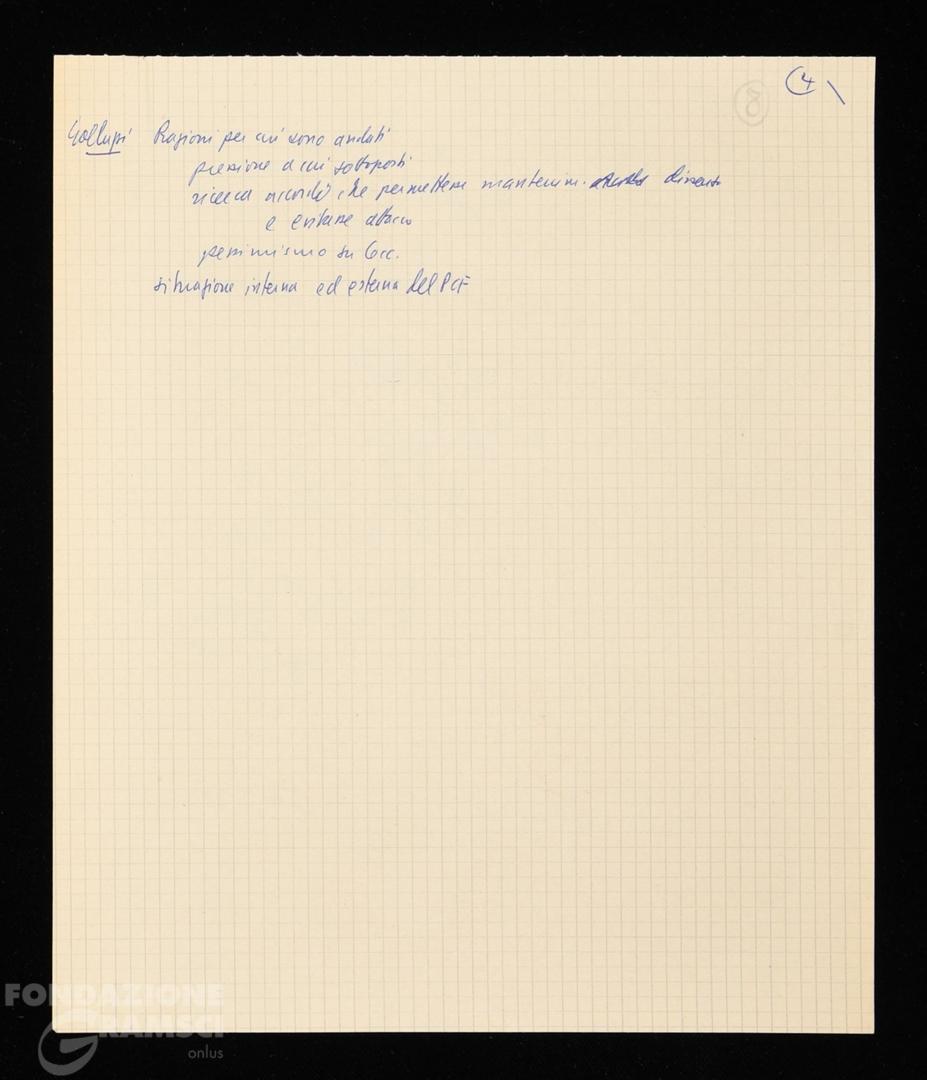 4
Galluppi Ragioni per cui sono andati
pressione a cui sottoposti
ricerca accordo che permettesse mantenim. dissenso
e evitare attacco
pessimismo su Cec.
situazione interna ed esterna del PCF
FONDAZIONE
GRAMSCI
onlus